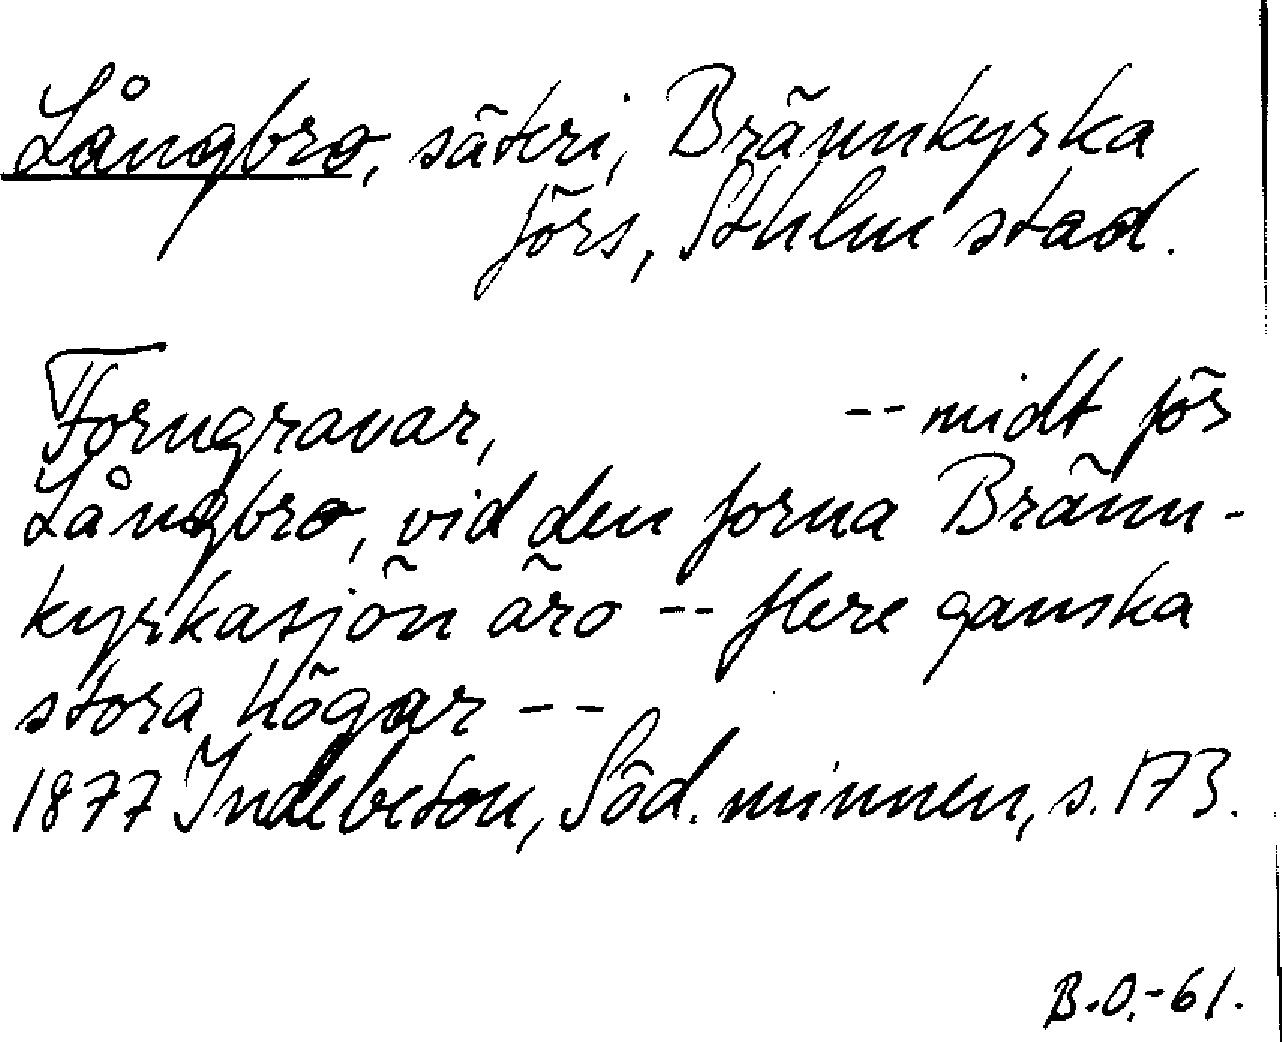 Långbro, säteri, Brännkyrka
förs, Sthlm stad.
Forngravar, -- midt för
Långbro, vid den forna Bränn-
kyrkasjön äro -- flere ganska
stora högar --
1877 Indebetou, Söd. minnen, s. 173.
B.O.-61.